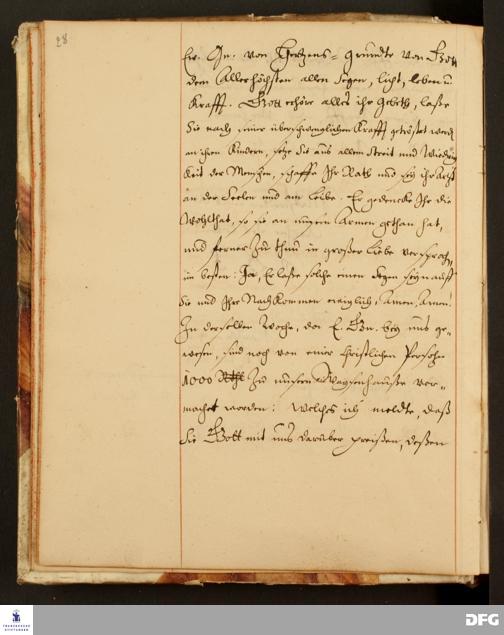 28
Ew. Gn. von Hertzens-grundte von Gott
dem Allerhöchsten allen Segen, licht, leben u.
Krafft. Gott erhöre alles ihr Gebeth, laße
Sie nach seiner überschwenglichen Krafft getröstet werden
an ihren Kindern, setze Sie aus allem Streit und Wiedrig
keit der Menschen, schaffe Ihr Rath und sey ihr Artzt
an der Seelen und am Leibe. Er gedencke Ihr die
Wohlthat, so sie an unsern Armen gethan hat,
und ferner zu thun in großer Liebe versproch,
im besten: Ja, Er laße solche einen Segen seyn auff
Sie und Ihre Nachkommen ewiglich, Amen, Amen!
In derselben Woche, da E. Gn. bey uns ge-
wesen, sind noch von einer Christlichen Persohn
1000 Rthl zu unserm Waysenhause ver-
machet worden: Welches ich melde, daß
Sie Gott mit uns darüber preißen, deßen
FRANCKESCHE STIFTUNGEN
DFG